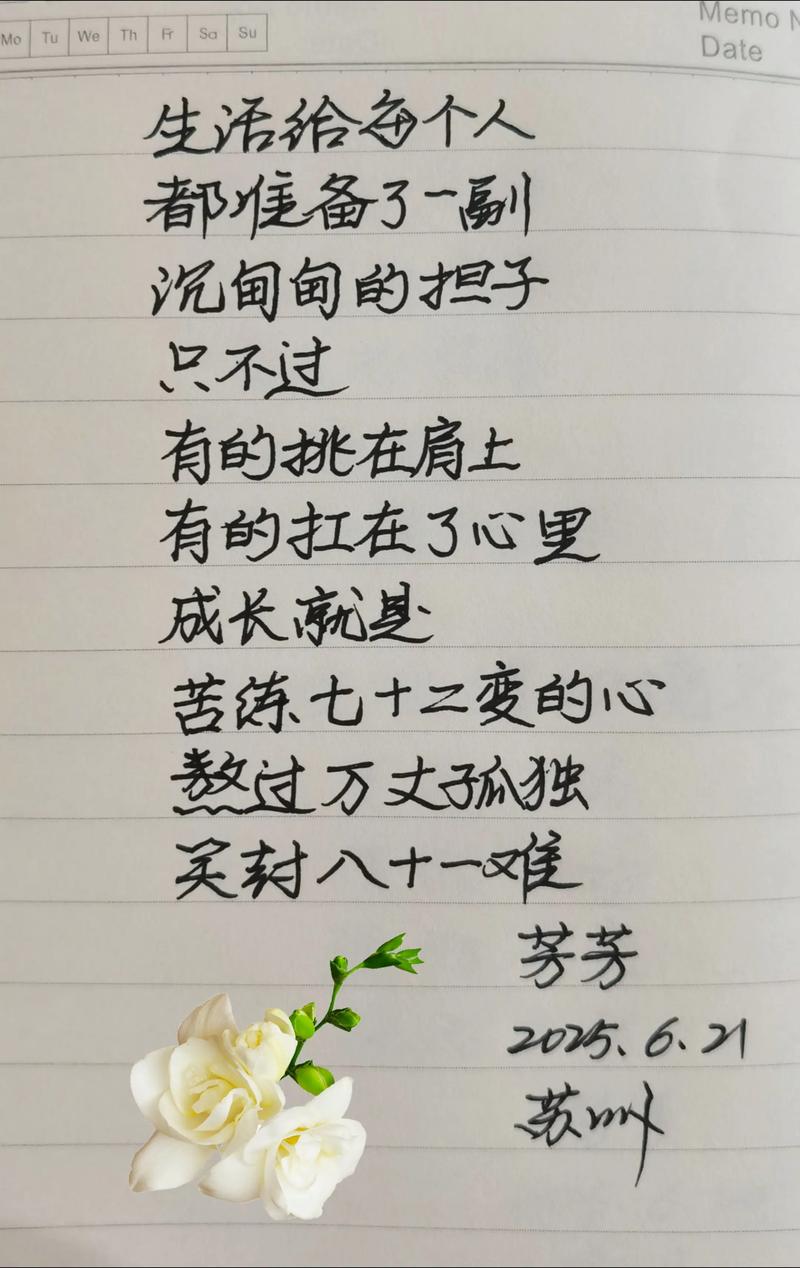 Mo Tu We Th Fr Sa Su
Memo N
Date
生活给每个人
都准备了一副
沉甸甸的担子
只不过
有的挑在肩上
有的扛在了心里
成长就是
苦练七十二变的心
熬过万丈孤独
笑封八十一难
芳芳
2025.6.21
苏州